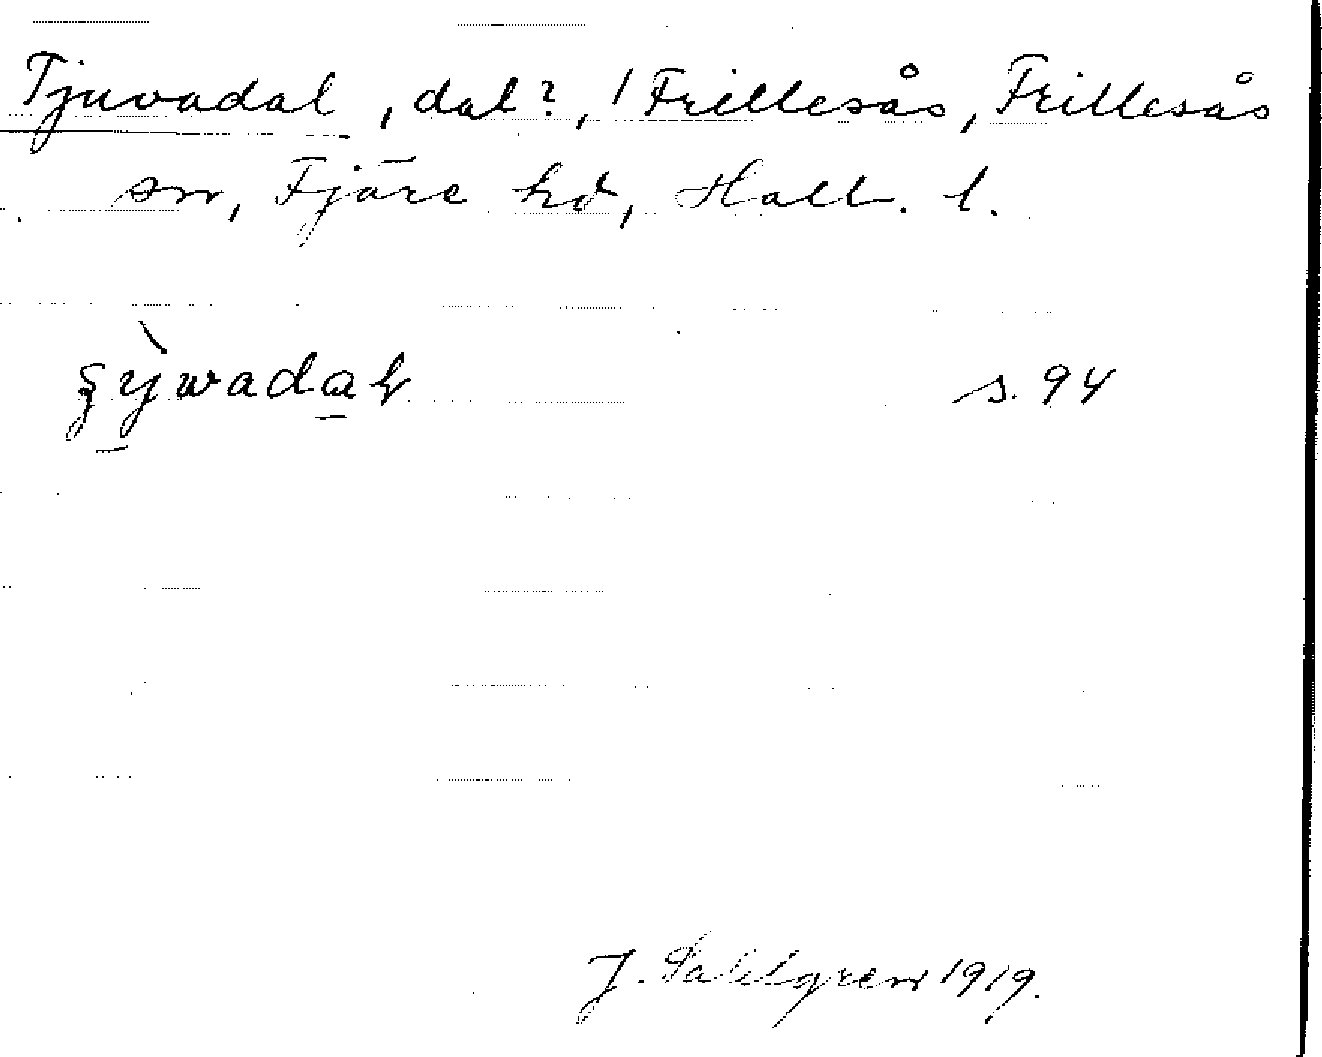 Tjuvadal, dal?, / Frillesås, Frillesås
sn, Fjäre hd, Hall. l.
s. 94
J. Sahlgren 1919.